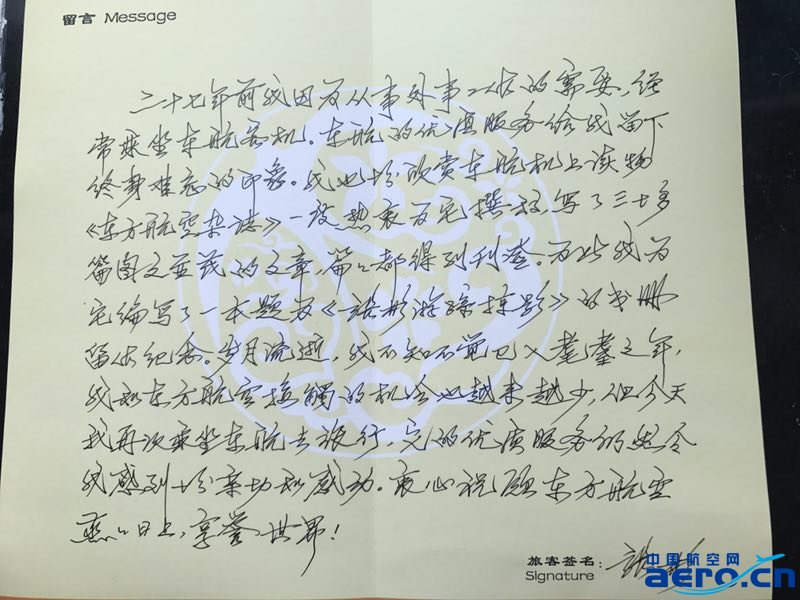 留言 Message
二十七年前我因为从事外事工作的需要,经
常乘坐东航客机。东航的优质服务给我留下
终身难忘的印象。我也十分欣赏东航机上读物
《东方航空杂志》一段热衷为它撰稿,写了三十多
篇图文并茂的文章,篇篇都得到刊登。为此我为
它编写了一本题为《谈形游踪掠影》的书册
留作纪念。岁月流逝,我不知不觉已入耄耋之年,
我和东方航空接觸的机会也越来越少,但今天
我再次乘坐东航去旅行,它的优质服务仍然令
我感到十分亲切和感动。衷心祝愿东方航空
蒸蒸日上,享誉世界!
旅客签名:
Signature
中国航空网
aero.cn